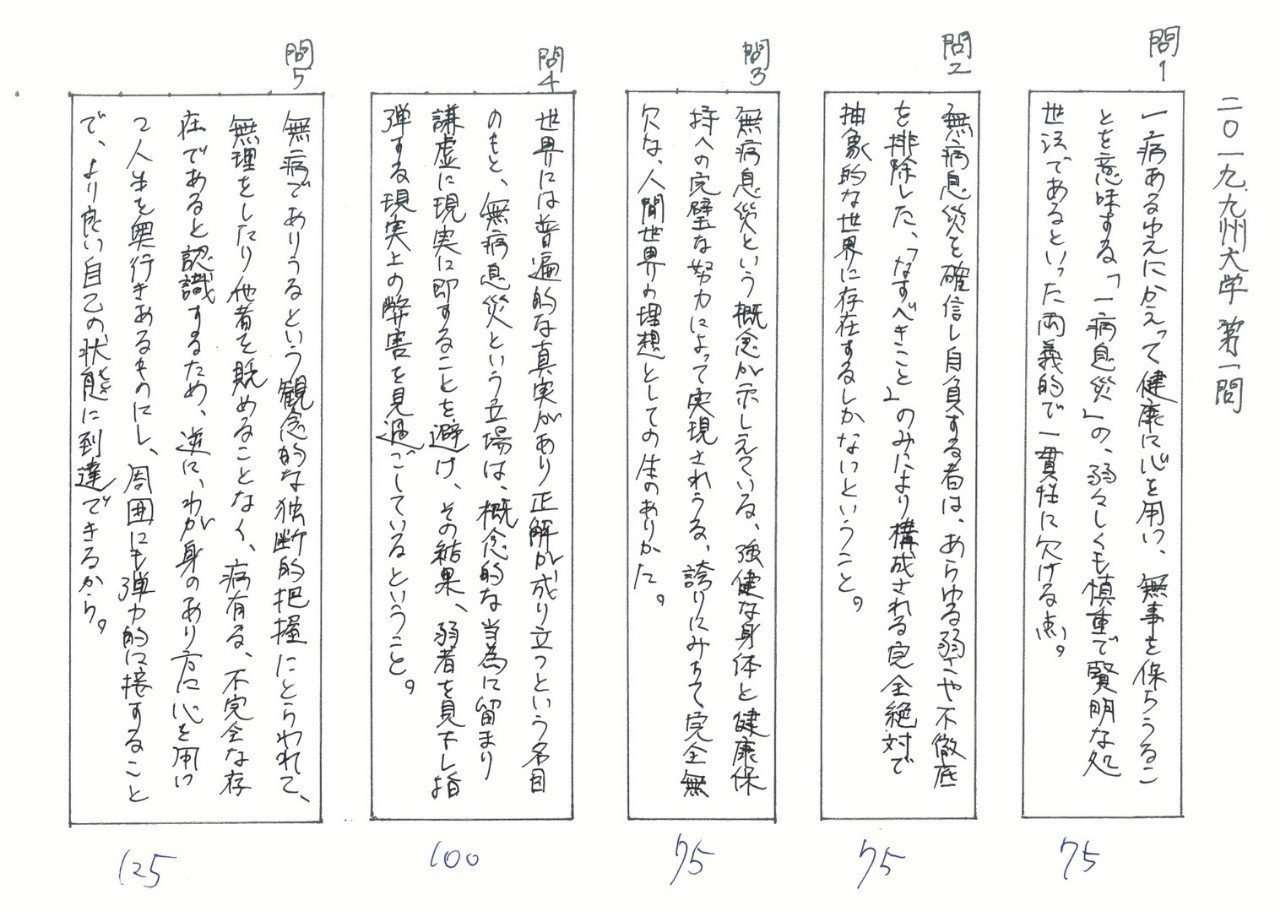 二〇一九 九州大学 第一問
問1
一病あるゆえにかえって健康に心を用い、無事を保ちうるこ
とを意味する「一病息災」の、弱々しくも慎重で賢明な処
世法であるといった両義的で一貫性に欠ける点。
75
問2
無病息災を確信し自負する者は、あらゆる弱さや不徹底
を排除した、「なすべきこと」のみにより構成される完全絶対で
抽象的な世界に存在するしかないということ。
75
問3
無病息災という概念が示しえている、強健な身体と健康保
持への完璧な努力によって実現されうる、誇りにみちて完全無
欠な、人間世界の理想としての生のありかた。
75
問4
世界には普遍的な真実があり正解が成り立つという名目
のもと、無病息災という立場は、概念的な当為に留まり
謙虚に現実に即することを避け、その結果、弱者を見下し指
弾する現実上の弊害を見過ごしているということ。
100
問5
無病でありうるという観念的な独断的把握にとらわれて、
無理をしたり他者を貶めることなく、病有る、不完全な存
在であると認識するため、逆に、わが身のあり方に心を用い
て人生を奥行きあるものにし、周囲にも弾力的に接すること
で、より良い自己の状態に到達できるから。
125